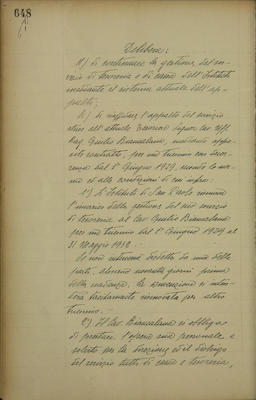 648
Delibera:
1°) di continuare la gestione del ser-
vizio di tesoreria e di cassa dell'Istituto
mediante il sistema attuale dell'ap-
palto;
2°) di l'appalto del servizio
stesso all'attuale signor cav. uff.
Rag. Giulio mediante appo-
sito contratto, per un triennio con decor-
renza dal 1° Giugno 1929, secondo le norme
ed alle condizioni di cui infra:
1°) L'Istituto di San Paolo
l'incarico della gestione del suo servizio
di tesoreria al Cav. Giulio
per un triennio dal 1° Giugno 1929 al
31 Maggio 1932.
Se non interviene disdetta da una delle
parti, almeno novanta giorni prima
della scadenza, la convenzione si inten-
derà tacitamente rinnovata per altro
triennio.
2°) Il Cav. si obbliga
di prestare l'opera sua personale, e
soltanto per la direzione ed il disbrigo
del servizio tutto di cassa e tesoreria,